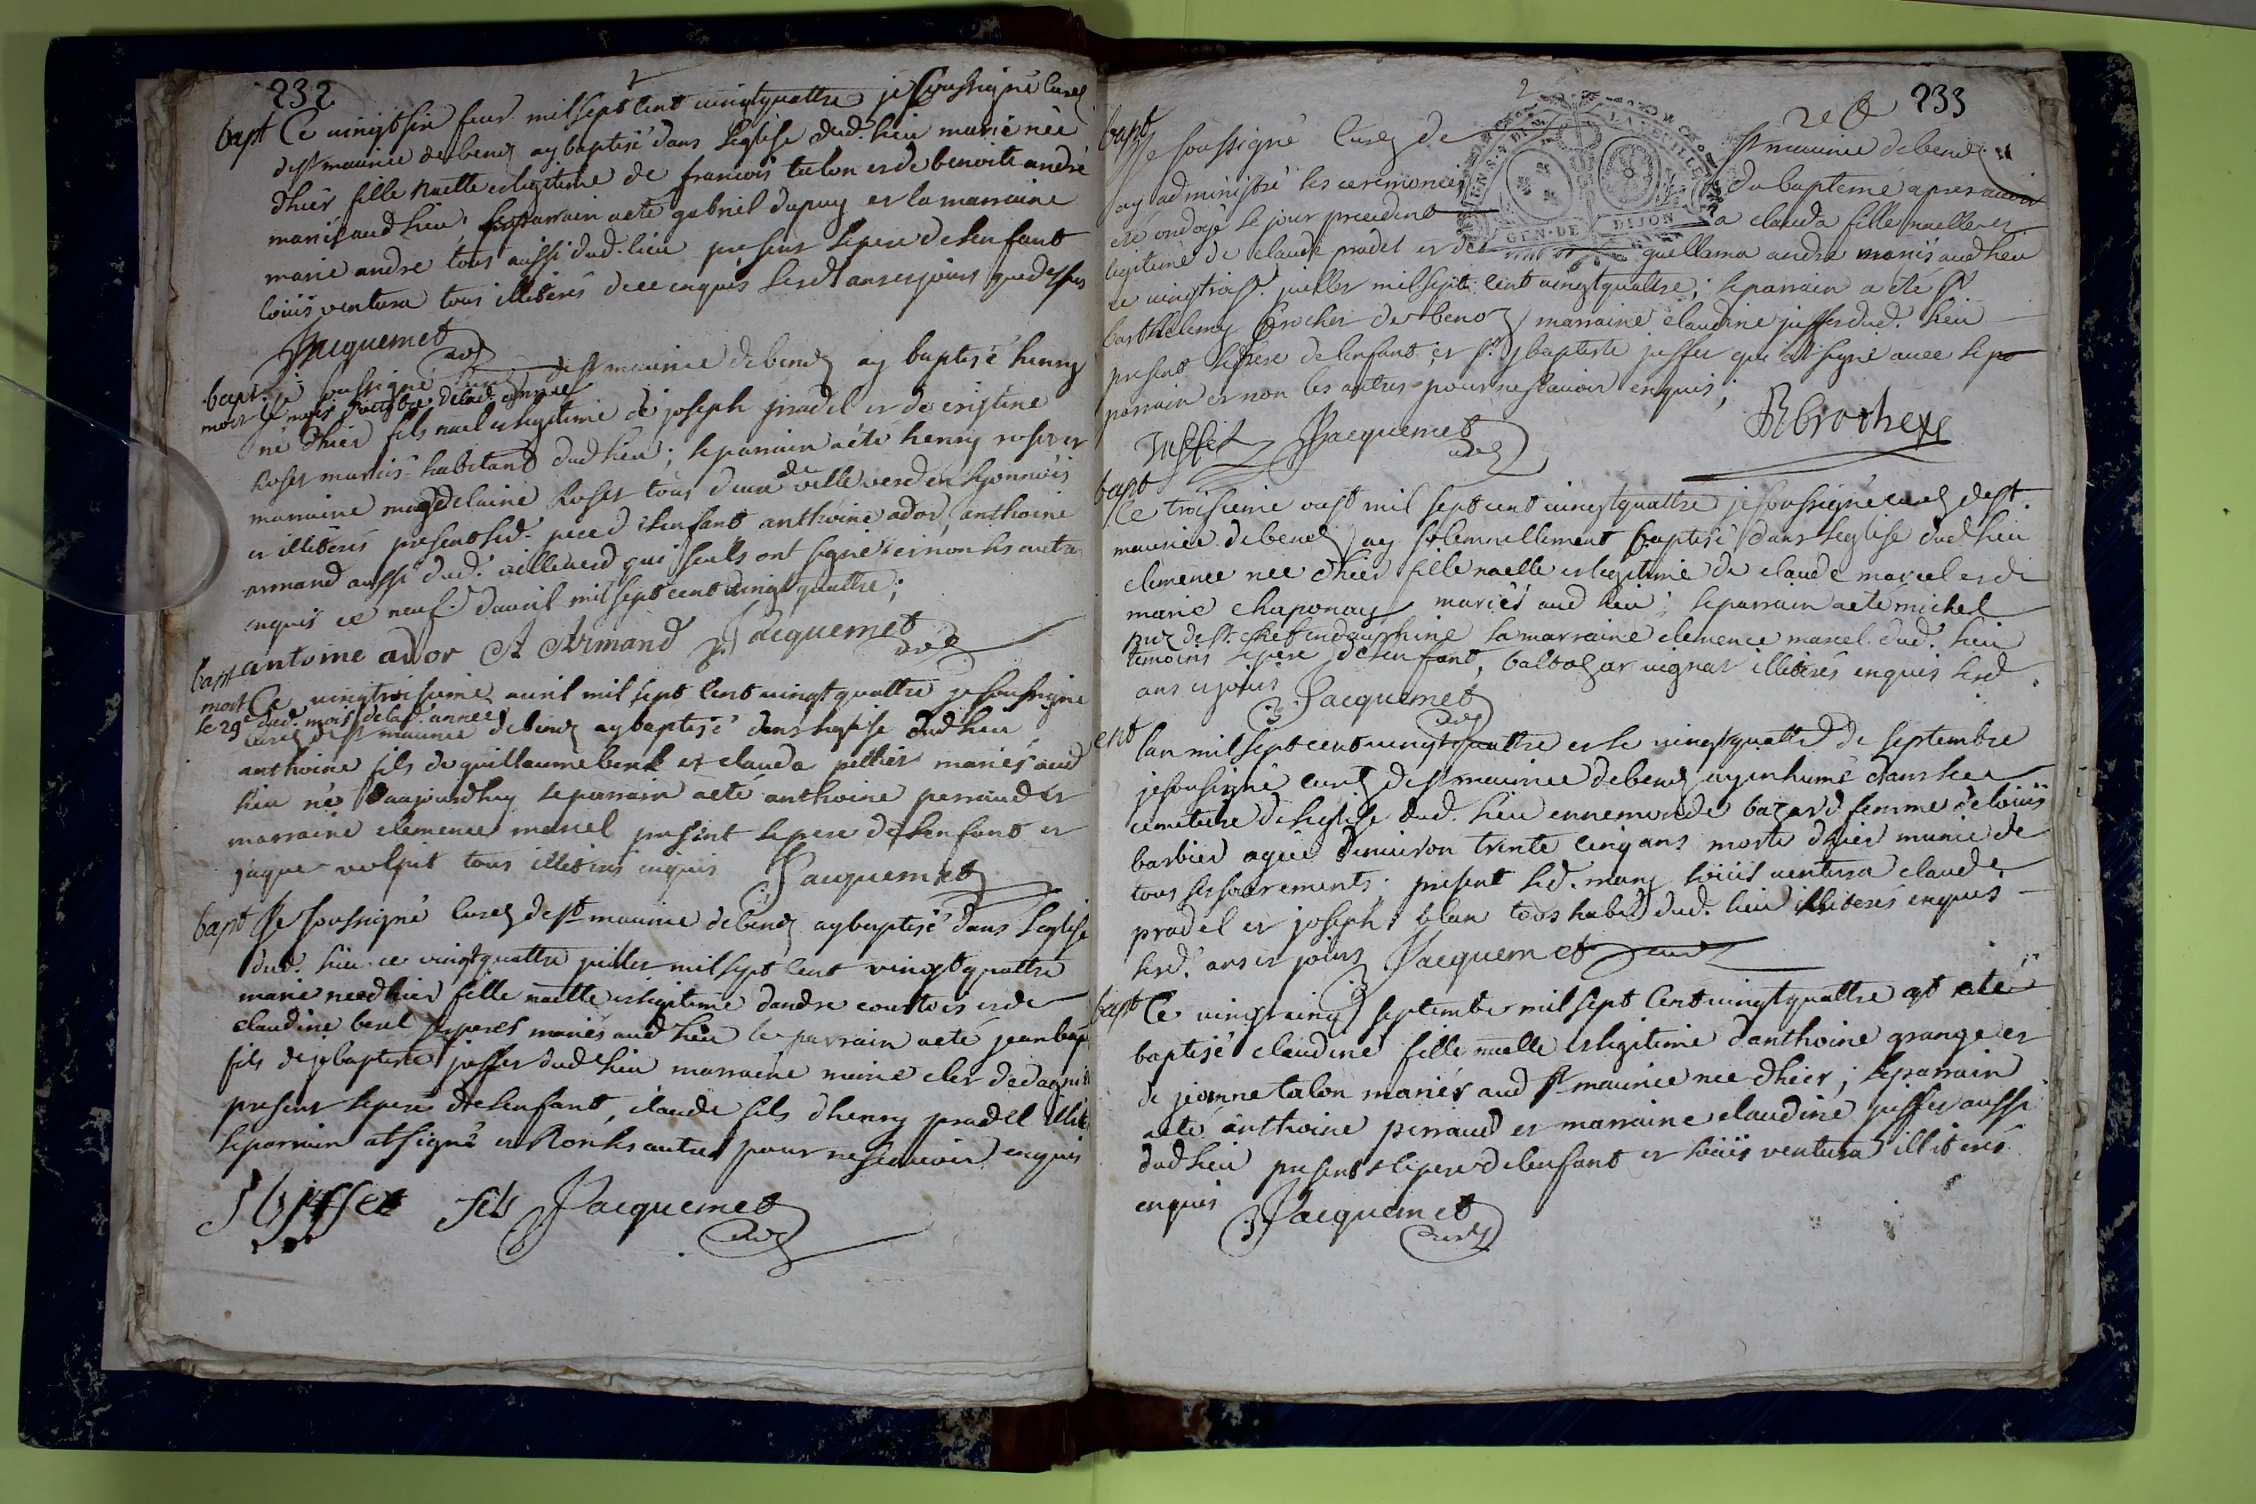 232
2
bapt Ce vingtsix feur. mil sept Cent vingtquattre je soussigné Curez
de st maurice debenez ay baptisé dans leglise dud. lieu marie née
dhier fille naelle et legitime de francois talon et de benoite andre
mariés aud lieu, le parrain a eté gabriel dupuy et la marraine
marie andre tous aussi dud. lieu present le pere delenfant
loüis ventura tous illiterés de ce enquis lesd ans et jours que dessus
Jacquemet
curé
bapt. Je soussigné Curez de st maurice debenez ay baptisé henry
mort le mois doctobre de lad. année
né dhier fils nael et legitime de joseph pradel et de cristine
Roset mariés habitans dud lieu; le parrain a eté henry roset et
marraine magdelaine Roset tous deux de ville verd en lyonnois
et illiterés present led. pere d lenfant anthoine ador, anthoine
armand aussi dud. villeverd qui seuls ont signé et non les autres
enquis ce neuf. davril mil sept cent vingt quattre;
antoine ador A Armand Jacquemet
curé
bapt
mort Ce vingtroisieme avril mil sept Cent vingt quattre je soussigné
le 29e dud. mois de lad. année
curez de st maurice debenez ay baptisé dans leglise dud lieu
anthoine fils de guillaume benk et clauda peltier mariés aud
lieu né daujourdhuy le parrain a eté anthoine perraud et
marraine clemence marcel present le pere delenfant et
jaque volpit tous illiterés enquis Jacquemet
bapt Je soussigné Curez de st maurice debenez ay baptisé dans leglise
dud. lieu ce vingtquattre juillet mil sept Cent vingt quattre
marie née dhier fille naelle et legitime dandre courtois et de
claudine benk mariés aud lieu le parrain a eté jean bap
fils de j baptiste juffet dud lieu marraine marie cler
present le pere delenfant, claude fils dhenry pradel
le parrain at signé et Non les autres pour ne scavoir enquis
J b juffet fils Jacquemet
curé
233
2
bapt Je soussigné Curez de st maurice debenez
ay administré les ceremonies du bapteme apres avoir
eté ondoyé le jour precedent a clauda fille naelle et
GEN. DE DIJON
legitime de claude pradel et de guillama andre mariés aud lieu
ce vingtrois. juillet mil sept cent vingtquattre; le parrain a eté sr
barthelemy brochet de benoz marraine claudine juffet dud. lieu
present le frere de lenfant et sr j baptiste juffet qui at signé avec le
parrain et non les autres pour ne scavoir enquis;
Juffet Jacquemet B Brochet
curé
bapt
Ce troisieme oust mil sept cent vingtquattre je soussigné curez de st.
maurice debenez ay solemnellement baptisé dans leglise dud lieu
clemence née dhier fille naelle et legitime de claude marcel et de
marie chaponay mariés aud lieu; le parrain a eté michel
de st. chef en dauphiné la marraine clemence marcel dud. lieu
temoins le pere delenfant, baltazar vignat illiterés enquis lesd.
ans et jours Jacquemet
curé
ent lan mil sept cent vingtquattre et le vingtquattre de septembre
je soussigné curez de st maurice debenez ay inhumé dans le
cemetiere de leglise dud. lieu ennemonde bazard femme de loüis
barbier agée denviron trente cinq ans morte dhier munie de
tous les sacrements. present led. mary loüis ventura claude
pradel et joseph blan tous habit. dud. lieu illiterés enquis
lesd. ans et jours Jacquemet curé
bapt Ce vingtcinq septembre mil sept Cent vingtquattre at eté
baptisé claudine fille naelle et legitime danthoine grange et
de jeanne talon mariés aud st maurice née dhier; le parrain
a eté anthoine perraud et marraine claudine juffet aussi
dud lieu present le pere delenfant et loüis ventura illiterés
enquis Jacquemet
curé